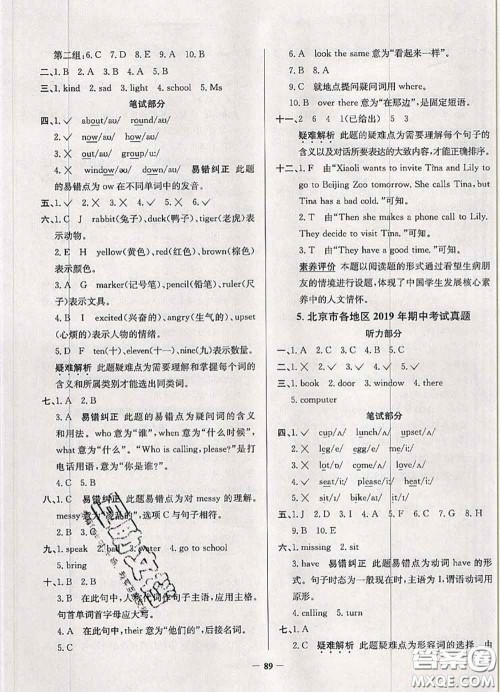 第二组:6.C 7.D 8.E 9.A 10.B
二、1.B 2.A 3.A 4.B 5.A
三、1.kind 2.sad 3.light 4.school 5.Ms
笔试部分
四、1.✓ about/aʊ/ round/aʊ/
2.✓ now/aʊ/ how/aʊ/
3.✓
4.✕ window/əʊ/ down/aʊ/ 易错纠正 此题
的易错点为 ow 在不同单词中的发音。
五、1.✓ 2.✕ 3.✓ 4.✕ 5.✕
六、1.C J rabbit(兔子),duck(鸭子),tiger(老虎)表
示动物。
2.E H yellow(黄色),red(红色),brown(棕色)
表示颜色。
3.A G marker(记号笔),pencil(铅笔),ruler(尺
子)表示文具。
4.B I excited(兴奋的),angry(生气的),sad(伤
心的)表示人物的情绪。
5.D F ten(十),eleven(十一),nine(九)表示数量。
疑难解析 此题疑难点为需要理解和掌握每个词的
含义和所属类别才能选出同类词。
七、1.B 2.C
3.A 易错纠正 此题的易错点为疑问词的含义
和用法。who 意为“谁”,when 意为“什么时候”,
what 意为“什么”。“Who is calling, please?”是打
电话用语,意为“你是谁?”。
4.B 5.B
八、1.C 易错纠正 此题易错点为对 messy 的理解。
messy 意为“凌乱的”,选项 C 与句子相符。
2.A 3.B 4.A 5.C
九、1.speak 2.bad 3.water 4.go to school
5.raining
十、1.B 2.B
3.A 在此句中,人称代词作句子主语,应用主格。
句首单词首字母应大写。
4.A 在此句中,their 意为“他们的”,后接名词。
5.C
6.A look the same 意为“看起来一样”。
7.B 8.B
9.C 就地点提问疑问词用 where。
10.B over there 意为“在那边”,是固定短语。
十一、2 6 4 1(已给出) 3 5
疑难解析 此题的疑难点为需要理解每个句子的
含义以及对话所要表达的大致内容,才能正确排序。
十二、1.F 由“Xiaoli wants to invite Tina and Lily to
go to Beijing Zoo tomorrow. She calls Tina, but
Tina has a bad cold.”可知。
2.T 由“Then she makes a phone call to Lily.
They decide to visit Tina.”可知。
3.T 由“They have a good time.”可知。
素养评价 本题以阅读题的形式通过看望生病朋
友的情境进行设题,体现了中国学生发展核心素
养中的人文情怀。
5. 北京市各地区 2019 年期中考试真题
听力部分
一、1.A 2.B 3.A 4.B 5.A
二、1.B 2.A 3.B 4.A 5.B
三、1.who 2.mine 3.window 4.there
5.computer
笔试部分
四、1.✓ cup/ʌ/ lunch/ʌ/
2.✕
3.✓ up/ʌ/ upset/ʌ/
4.✓ seat/iː/ please/iː/
5.✕ meat/iː/ bread/e/
五、1.B 2.F 3.A 4.C 5.D
六、1.missing 2.sit
3.have 易错纠正 此题易错点为动词 have 的形
式。句子时态为一般现在时,主语为 I,谓语动词用
原形。
4.calling 5.turn
七、1.B
2.C 疑难解析 此题疑难点为形容词的选择。由
89